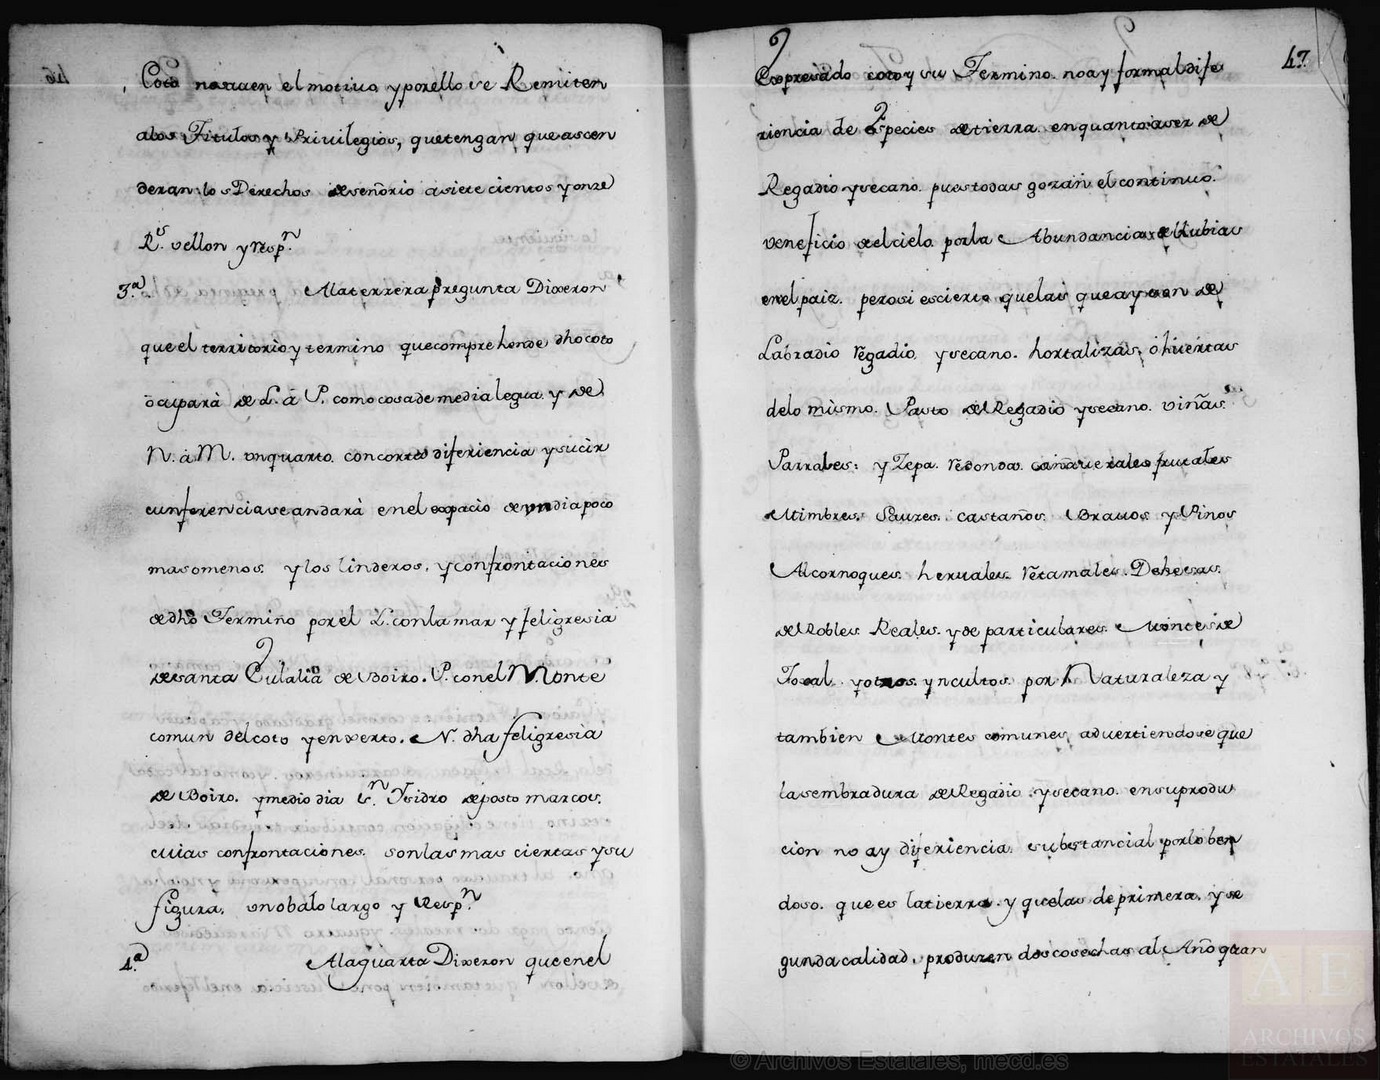 Coto no saven el motivo, y por ello se Remiten
alos Titulos y Privilegios, que tengan que ascen
deran los Derechos de señorio a siete cientos y onze
R.s vellon y Resp.n
3.a Ala terzera pregunta Dixeron
que el territorio y termino que comprehende dho coto
òcuparà de L. á P. como cosa de media legua y de
N. á M. un quarto. con corta diferiencia y su cir
cunferencia se andarà en el espacio de un dia poco
mas o menos y los linderos, y confrontaciones
de dho Termino por el L. con la mar y feligresia
de santa Eulalia de Boiro. P. con el Monte
comun del coto y enxerto. N. dha feligresia
de Boiro. y medio dia S.n Ysidro de posto marcos.
cuias confrontaciones son las mas ciertas y su
figura, un obalo largo y Resp.n
4.a Ala quarta Dixeron que en el
47.
Expresado coto y su Termino. no ay formal dife
riencia de Especies de tierra en quanto a ser de
Regadio y secano. pues todas gozan el continuo
veneficio del cielo por la Abundancia de llubias
en el paiz. pero si es cierto que las que ay son de
Labradio regadio y secano. hortalizas, ó huertas
delo mismo. Pasto de Regadio y secano. viñas
Parrales: y Zepa redonda. cañaverales frutales
Mimbres, Sauzes. castaños. Bravos y Pinos
Alcornoques. herbales. Retamales. Dehesas.
de Robles Reales. y de particulares. Montes de
Toxal y otros yncultos por Naturaleza y
tambien Montes comunes, advertiendose que
la sembradura de Regadio y secano. en su produ
cion no ay diferiencia substancial por lo ben
doso. que es la tierra. y que las de primera. y se
gunda calidad, produzen dos cosechas al Año quan
© Archivos Estatales, mecd.es
AE
ARCHIVOS
ESTATALES